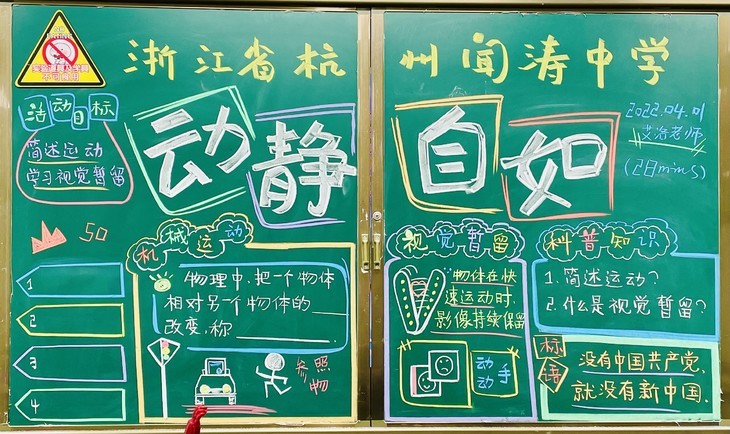 浙江省杭州闻涛中学
活动目标
简述运动
学习视觉暂留
动静自如
2022.04.01
艾洛老师
50
1
2
3
4
机械运动
物理中,把一个物体
相对另一个物体的__
改变,称__
参照
物
视觉暂留
物体在快
速运动时,
影像持续保留
动
动
手
科普知识
1.简述运动?
2.什么是视觉暂留?
标语
没有中国共产党,
就没有新中国.